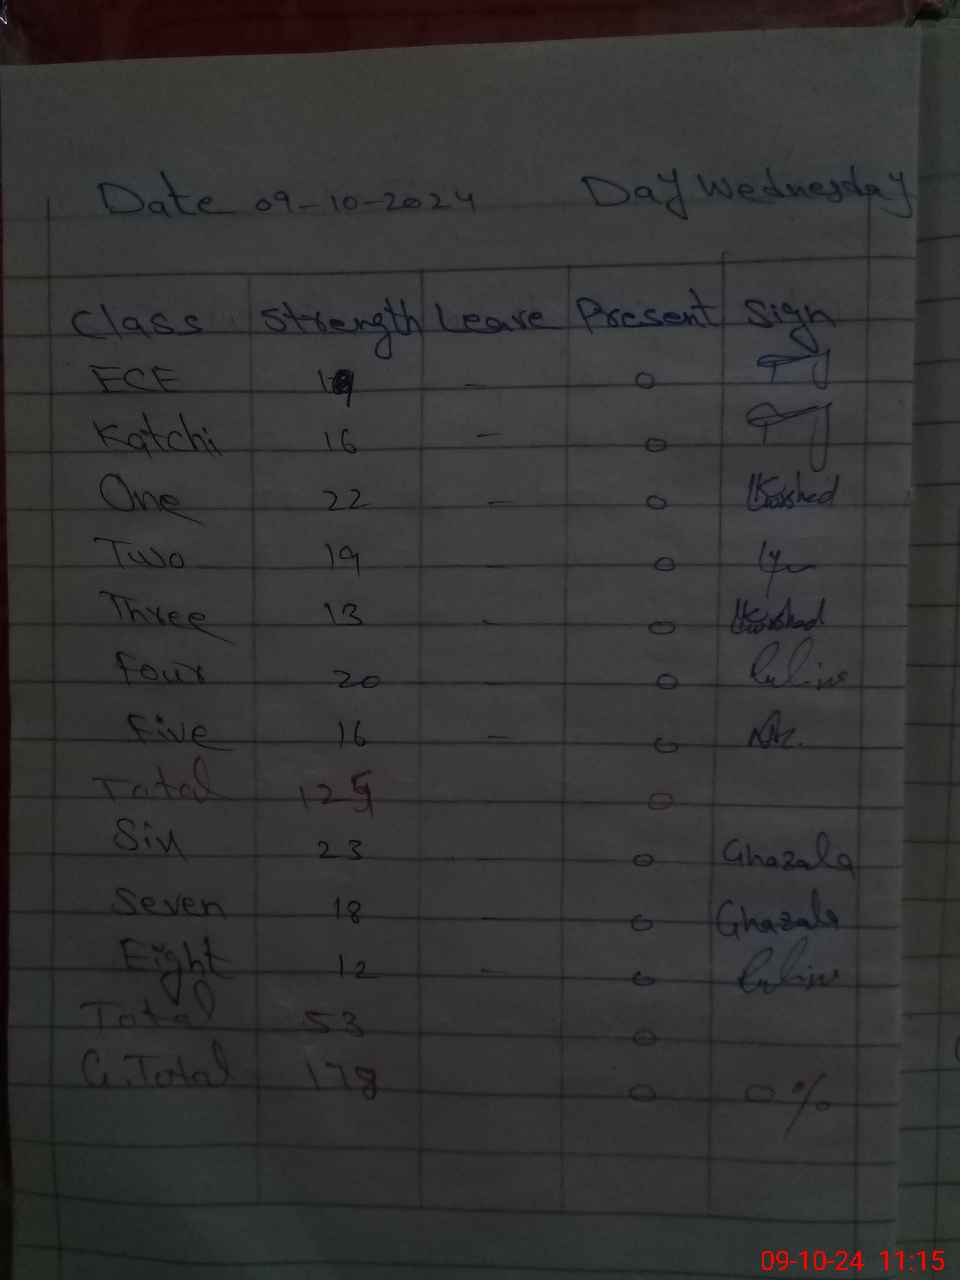 Date 09-10-2024 Day Wednesday
Class Strength Leave Present Sign
ECE 19 - 0
Katchi 16 - 0
One 22 - 0 Khurshed
Two 19 - 0
Three 13 - 0 Khurshed
Four 20 - 0
Five 16 - 0
Total 125 0
Six 23 - 0 Ghazala
Seven 18 - 0 Ghazala
Eight 12 - 0
Total 53 0
G.Total 178 0 0%
09-10-24 11:15